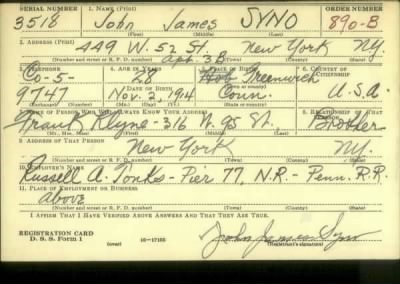 SERIAL NUMBER 1. NAME (Print) ORDER NUMBER
3518 John James SYNO 890-B
(First) (Middle) (Last)
2. ADDRESS (Print)
449 W. 52 St. New York N.Y.
Apt. 3B
(Number and street or R. F. D. number) (Town) (County) (State)
3. TELEPHONE 4. AGE IN YEARS 5. PLACE OF BIRTH 6. COUNTRY OF CITIZENSHIP
Co-5- 28 Greenwich
DATE OF BIRTH (Town or county)
9747 Nov. 2, 1914 Conn. U.S.A.
(Exchange) (Number) (Mo.) (Day) (Yr.) (State or country)
7. NAME OF PERSON WHO WILL ALWAYS KNOW YOUR ADDRESS 8. RELATIONSHIP OF THAT PERSON
Frank Clyne - 316 W. 95 St. Brother
(Mr., Mrs., Miss) (First) (Middle) (Last)
9. ADDRESS OF THAT PERSON
New York N.Y.
(Number and street or R. F. D. number) (Town) (County) (State)
10. EMPLOYER'S NAME
Russell A. Tonks - Pier 77, N.R. - Penn. R.R.
11. PLACE OF EMPLOYMENT OR BUSINESS
above
(Number and street or R. F. D. number) (Town) (County) (State)
I AFFIRM THAT I HAVE VERIFIED ABOVE ANSWERS AND THAT THEY ARE TRUE.
REGISTRATION CARD
D. S. S. Form 1 (over) 16-17105 John James Syno
(Registrant's signature)